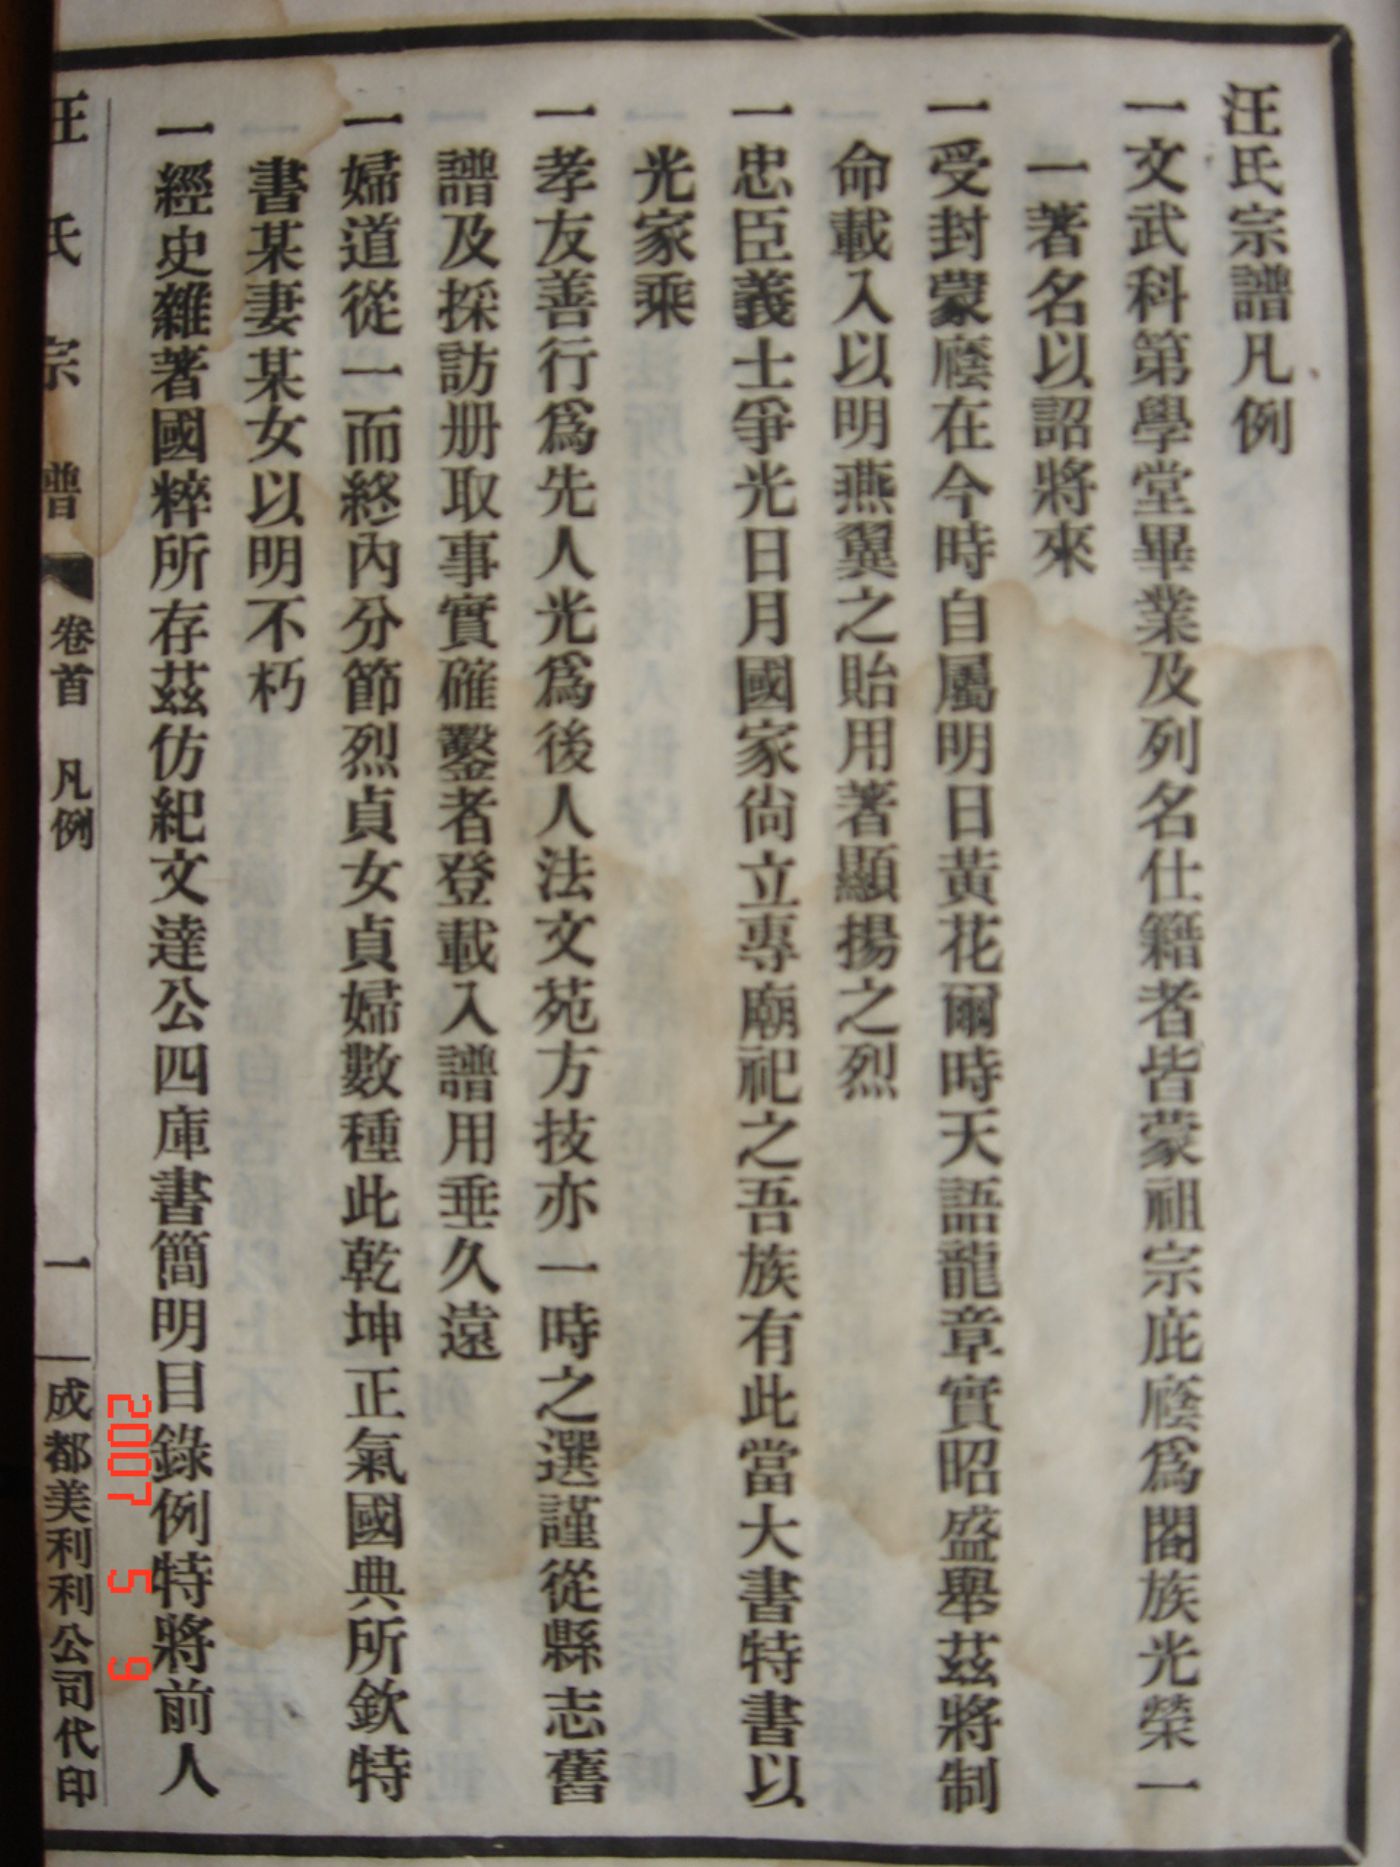 汪氏宗譜凡例
一文武科第學堂畢業及列名仕籍者皆蒙祖宗庇廕爲闔族光榮一
一著名以詔將來
一受封蒙廕在今時自屬明日黃花爾時天語龍章實昭盛舉茲將制
命載入以明燕翼之貽用著顯揚之烈
一忠臣義士爭光日月國家尙立專廟祀之吾族有此當大書特書以
光家乘
一孝友善行爲先人光爲後人法文苑方技亦一時之選謹從縣志舊
譜及採訪册取事實確鑿者登載入譜用垂久遠
一婦道從一而終內分節烈貞女貞婦數種此乾坤正氣國典所欽特
書某妻某女以明不朽
一經史雜著國粹所存茲仿紀文達公四庫書簡明目錄例特將前人
汪氏宗譜 卷首 凡例 一 成都美利利公司代印
2007 5 9